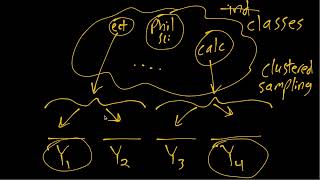 Phil
sci
calc
classes
....
clustered
sampling
Y₁ Y₂ Y₃ Y₄